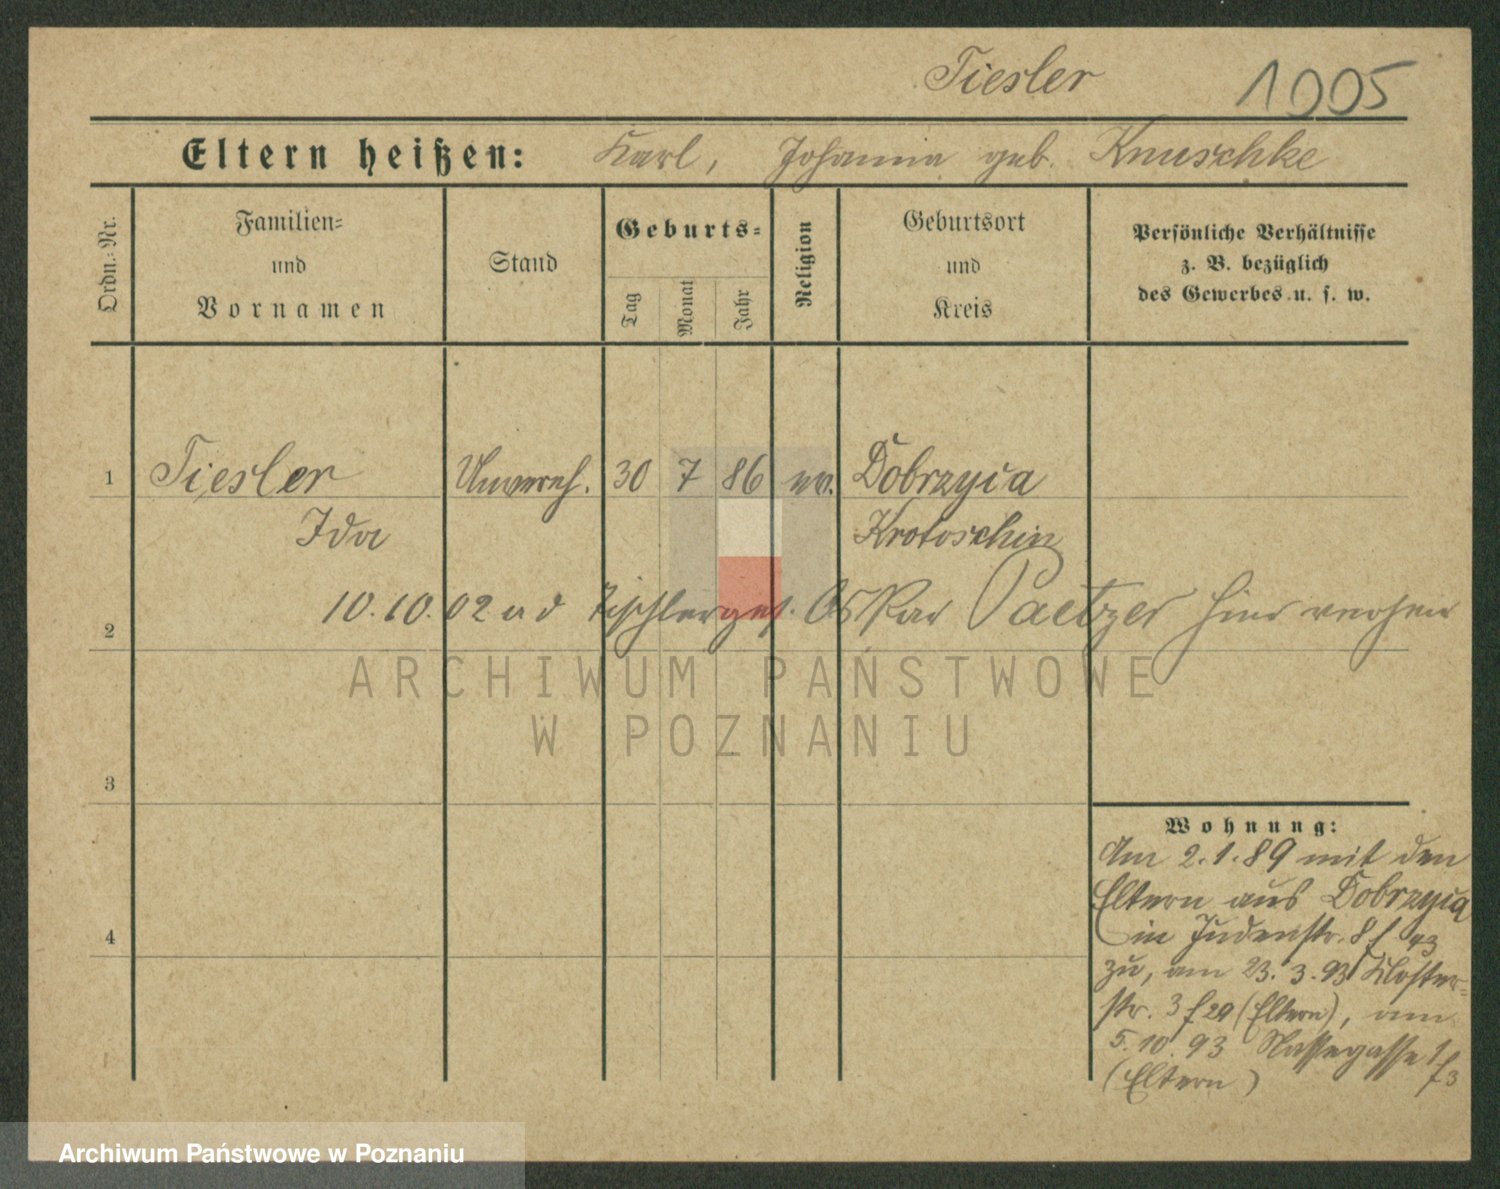 Tiesler 1005
Eltern heißen: Karl, Johanna geb. Knuschke
Ordn.-Nr.
Familien-
und
Vornamen
Stand
Geburts-
Tag
Monat
Jahr
Religion
Geburtsort
und
Kreis
Persönliche Verhältnisse
z. B. bezüglich
des Gewerbes u. s. w.
1 Tiesler Unvereh. 30 7 86 ev. Dobrzyca
Ida Krotoschin
2 10.10.02 a d Tischlerges. Oskar Paetzel hier
ARCHIWUM PAŃSTWOWE
W POZNANIU
3
Wohnung:
Am 2.1.89 mit den
Eltern aus Dobrzyca
4 in Judenstr. 8 f
zu, am 23.3.93 Kloster-
str. 3 f 29 (Eltern), am
5.10.93 Nassegasse 1
(Eltern) f3
Archiwum Państwowe w Poznaniu